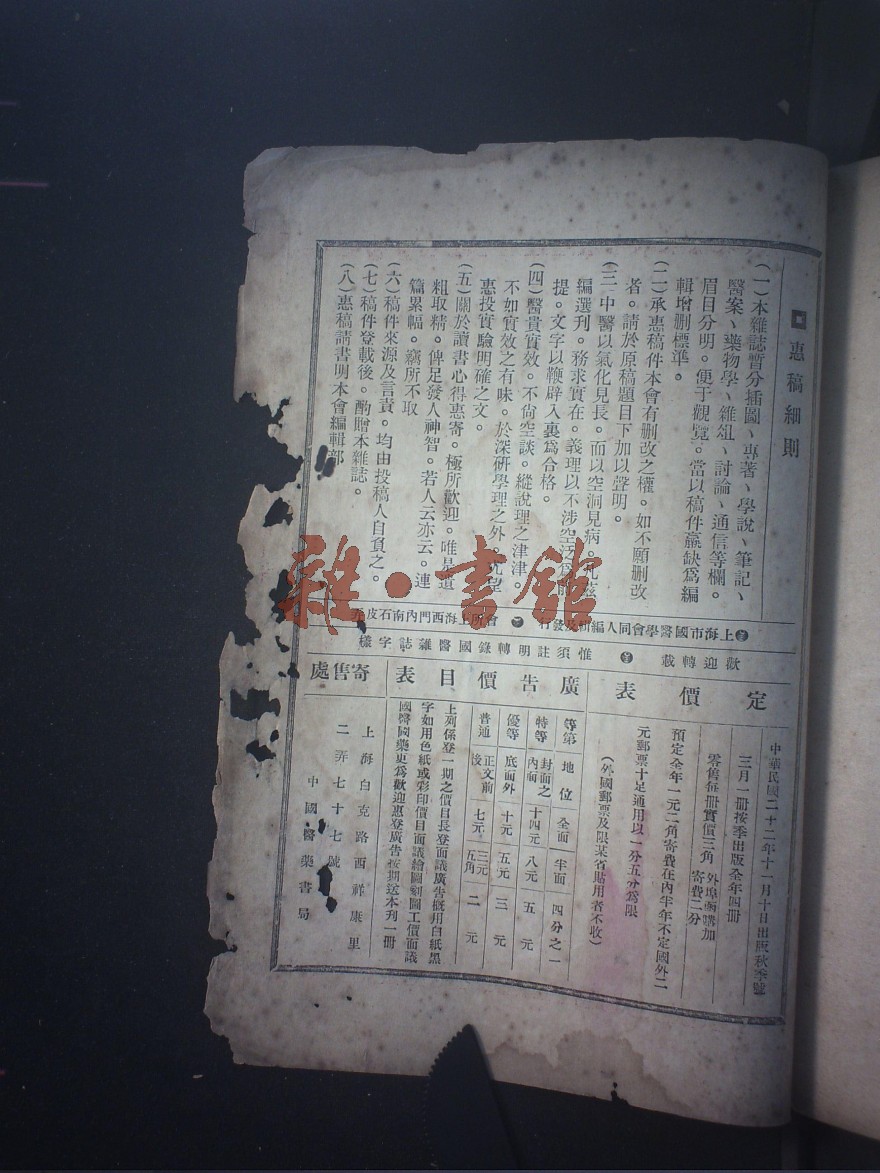 惠稿細則
(一)本雜誌暫分插圖、專著、學說、筆記、
醫案、藥物學、雜俎、討論、通信等欄。
眉目分明。便于觀覽。當以稿件贏缺爲編
輯增删標準。
(二)承惠稿件本會有删改之權。如不願删改
者。請於原稿題目下加以聲明。
(三)中醫以氣化見長。而以空洞見病。茲
編選刊。務求實在。義理以不涉空泛爲前
提。文字以鞭辟入裏爲合格。
(四)醫貴實效。不尙空談。縱說理之津津。
不如實效之有味。於深研學理之外。尤望
惠投實驗明確之文。
(五)關於讀書心得惠寄。極所歡迎。唯是遺
粗取精。俾足發人神智。若人云亦云。連
篇累幅。竊所不取
(六)稿件來源及言責。均由投稿人自負之。
(七)稿件登載後。酌贈本雜誌。
(八)惠稿請書明本會編輯部
上海市國醫學會同人編輯及發行 會所上海西門內南石皮弄
歡迎轉載 惟須註明轉錄國醫雜誌字樣
定價表
中華民國二十二年十一月十日出版秋季號
三月一冊按季出版全年四冊
零售每冊實價三角 外埠函購加寄費二分
預定全年一元二角寄費在內半年不定國外二
元郵票十足通用以一分五分爲限
(外國郵票及限某省貼用者不收)
廣告價目表
等第 地位 全面 半面 四分之一
特等 封面之內面 十四元 八元 五元
優等 底面外 十元 五元 三元
普通 正文前後 七元 三元五角 二元
上列係登一期之價目長登面議廣告概用白紙黑
字如用色紙或彩印價目面議繪圖刻圖工價面議
國醫國藥更爲歡迎惠登廣告按期送本刊一冊
寄售處
上海白克路西祥康里
二弄七十七號
中國醫藥書局
雜·書館